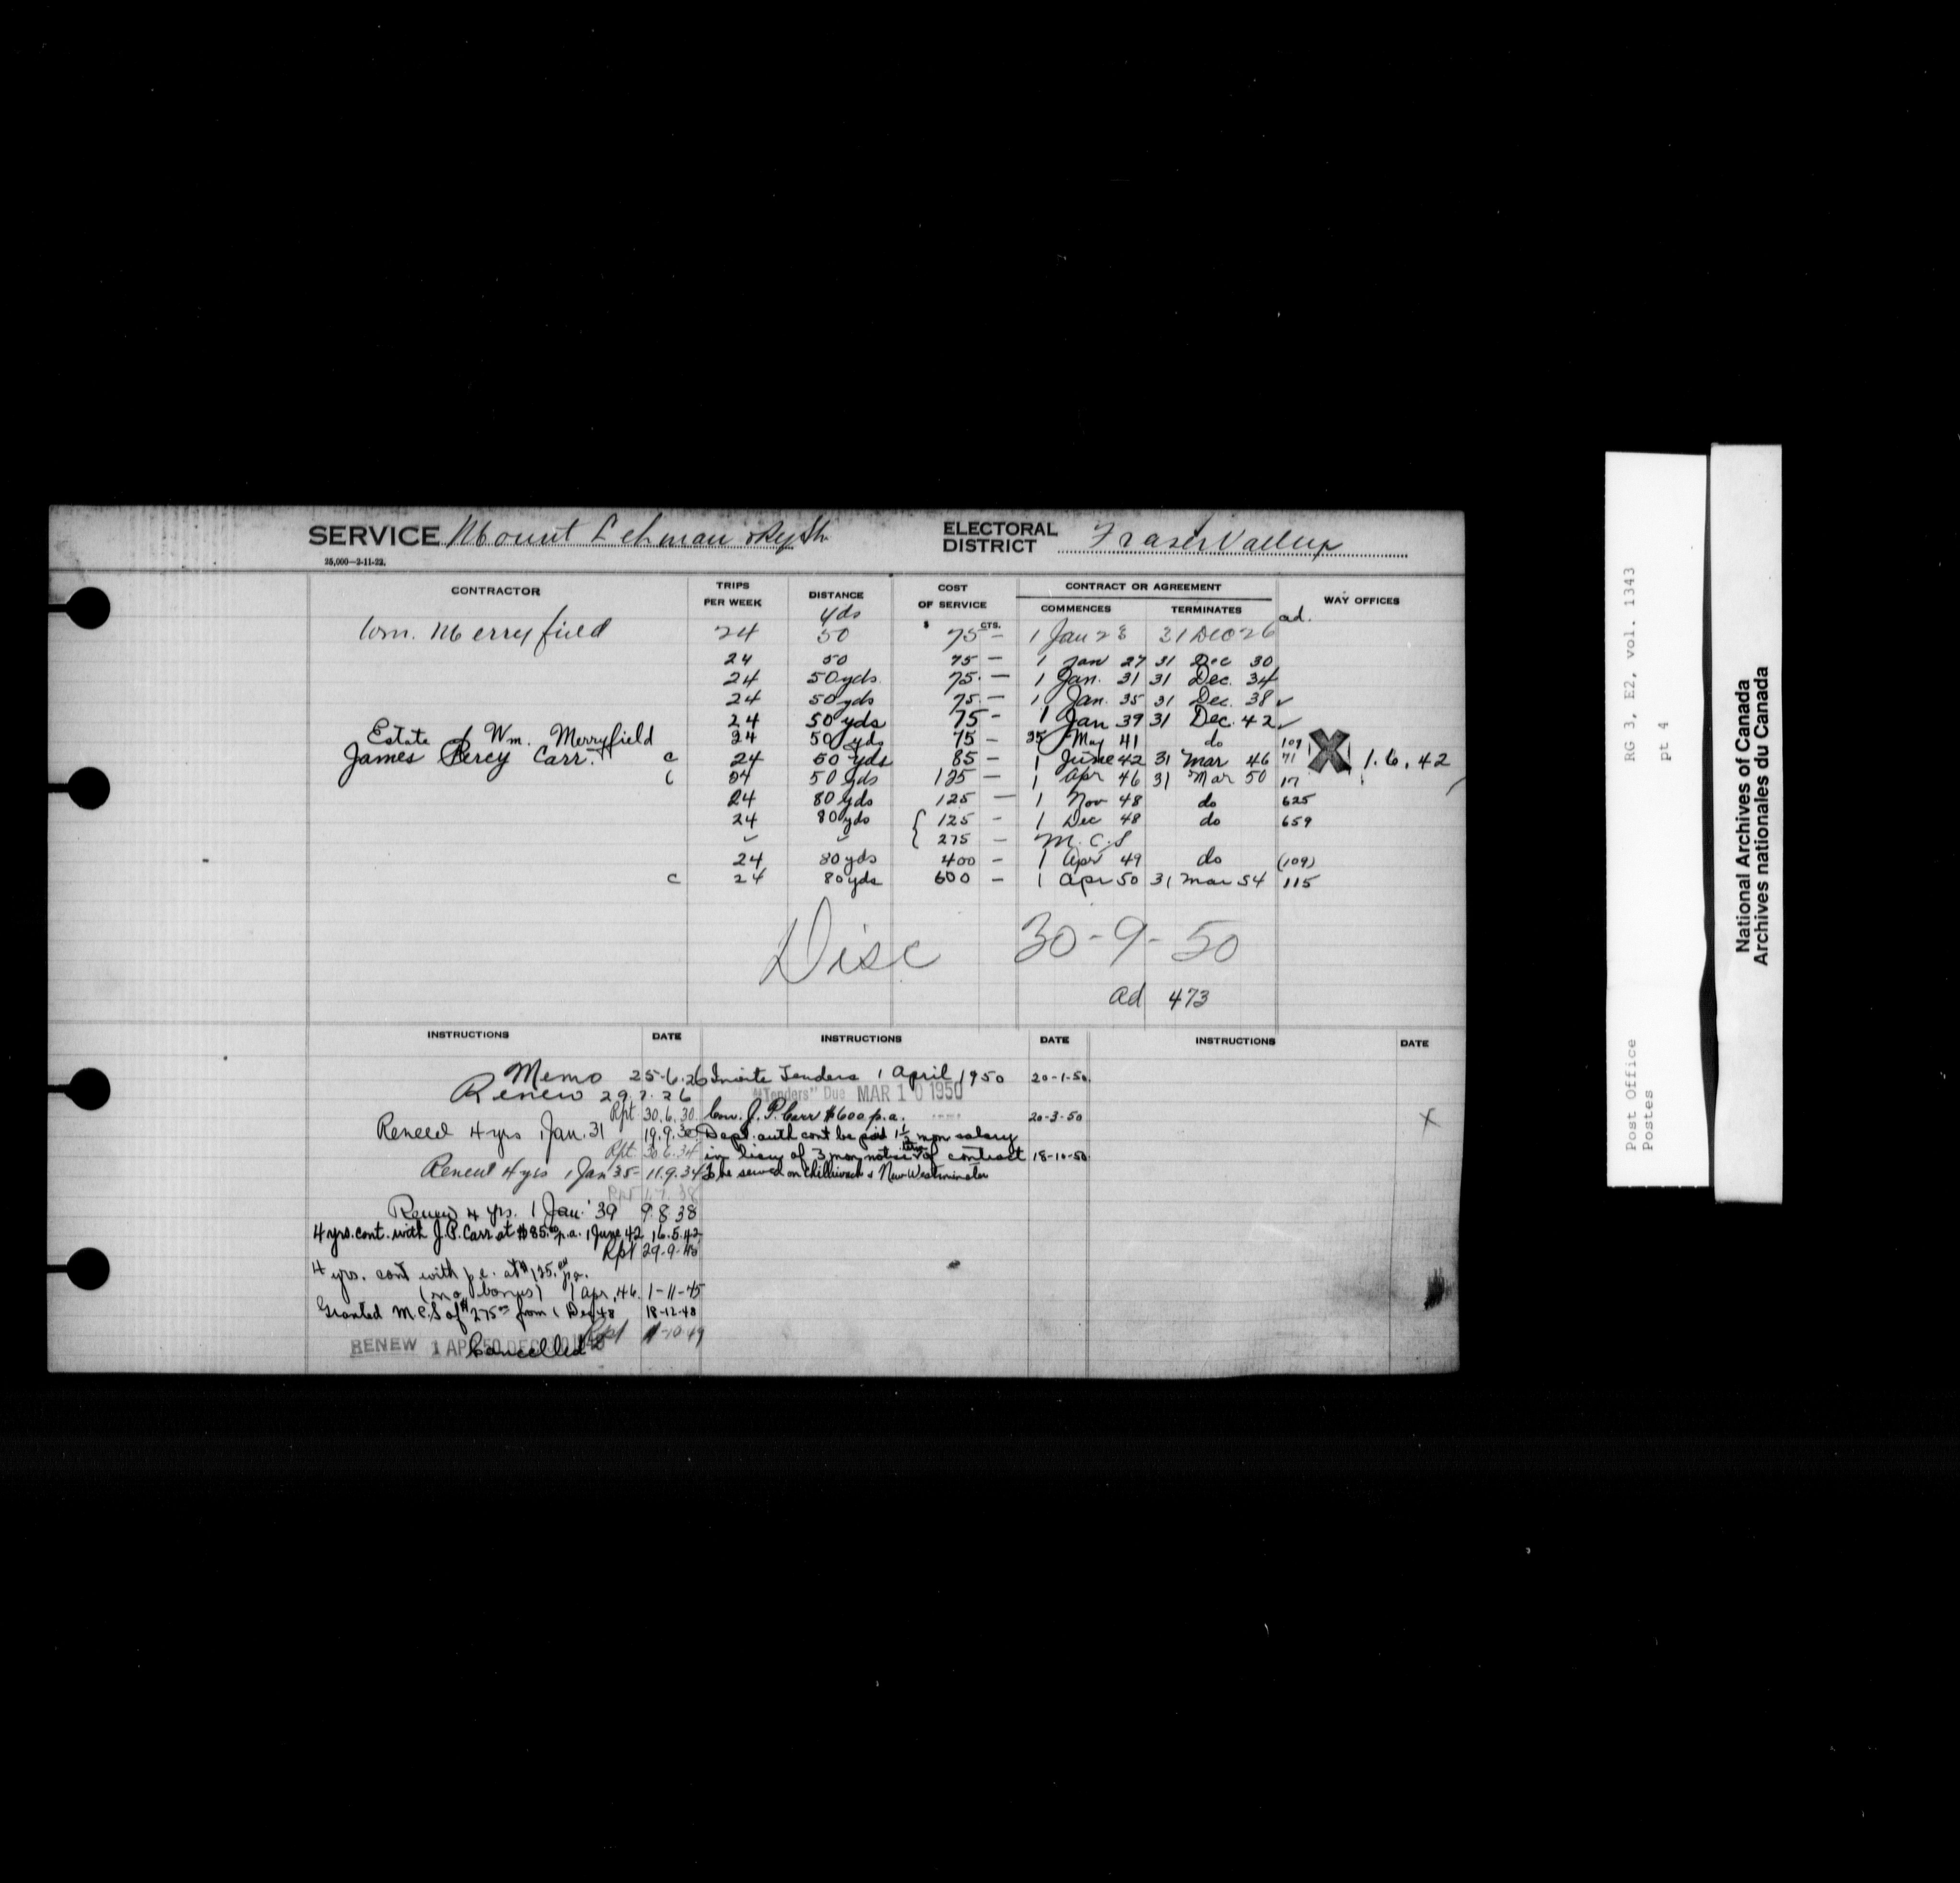 SERVICE Mount Lehman & Ry Stn
ELECTORAL DISTRICT Fraser Valley
25,000—2-11-22.
CONTRACTOR TRIPS PER WEEK DISTANCE COST OF SERVICE CONTRACT OR AGREEMENT WAY OFFICES
COMMENCES TERMINATES
yds $ CTS. ad.
Wm. Merryfield 24 50 75 — 1 Jan 23 31 Dec 26
24 50 75 — 1 Jan 27 31 Dec 30
24 50 yds. 75. — 1 Jan. 31 31 Dec. 34
24 50 yds 75. — 1 Jan. 35 31 Dec. 38 ✓
24 50 yds 75 - 1 Jan 39 31 Dec. 42 ✓
Estate of Wm. Merryfield 24 50 yds 75 — 25 May 41 do 109
James Percy Carr. c 24 50 yds 85 — 1 June 42 31 Mar 46 71 X 1.6.42
c 24 50 yds 125 — 1 Apr 46 31 Mar 50 17
24 80 yds 125 — 1 Nov 48 do 625
24 80 yds { 125 — 1 Dec 48 do 659
" " { 275 — M.C.S
24 80 yds 400 — 1 Apr 49 do (109)
c 24 80 yds 600 — 1 Apr 50 31 Mar 54 115
Disc 30-9-50
ad 473
INSTRUCTIONS DATE INSTRUCTIONS DATE INSTRUCTIONS DATE
Memo 25-6.26
Renew 29.7.26
Rpt 30.6.30
Renew 4 yrs 1 Jan. 31 19.9.30
Rpt 30.6.34
Renew 4 yrs 1 Jan 35 - 11.9.34
Rpt 1.7.38
Renew 4 yrs. 1 Jan. '39 9.8.38
4 yrs. cont. with J.P. Carr at $85.00 p.a. 1 June 42 16.5.42
Rpt 29-9-45
4 yrs. cont with p.c. at $125.00 p.a.
(no bonus) 1 Apr. 46. 1-11-45
Granted M.C.S of $275.00 from 1 Dec 48 18-12-48
Rpt 1-10-49
RENEW 1 APR 50 DEC
Cancelled
Invite Tenders 1 April 1950 20-1-50.
"Tenders" Due MAR 10 1950
Con. J. P. Carr $600 p.a. 20-3-50
Dept. auth cont be paid 1½ mon salary
in lieu of 3 mon notice of contract 18-10-50
To be served on Chilliwack & New Westminster
X
Post Office RG 3, E2, vol. 1343
Postes pt 4
National Archives of Canada
Archives nationales du Canada